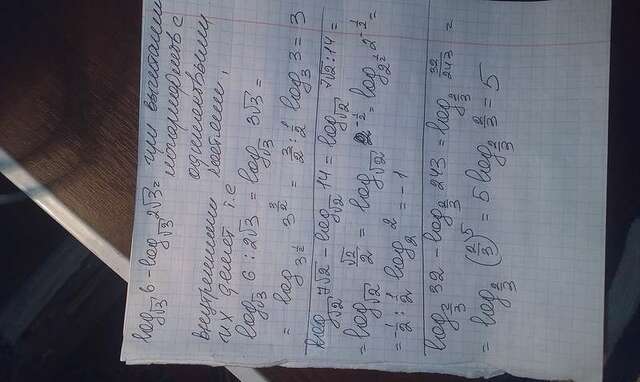 log_√3 6 - log_√3 2√3 = при вычитании
логарифмов с
одинаковыми
внутренними
их делят, т.е
log_√3 6 : 2√3 = log_√3 3√3 =
= log_{3^{1/2}} 3^{3/2} = 3/2 : 1/2 log_3 3 = 3
log_√2 7√2 - log_√2 14 = log_√2 7√2 : 14 =
= log_√2 √2/2 = log_√2 2^{-1/2} = log_{2^{1/2}} 2^{-1/2} =
= -1/2 : 1/2 log_2 2 = -1
log_{2/3} 32 - log_{2/3} 243 = log_{2/3} 32/243 =
= log_{2/3} (2/3)^5 = 5 log_{2/3} 2/3 = 5